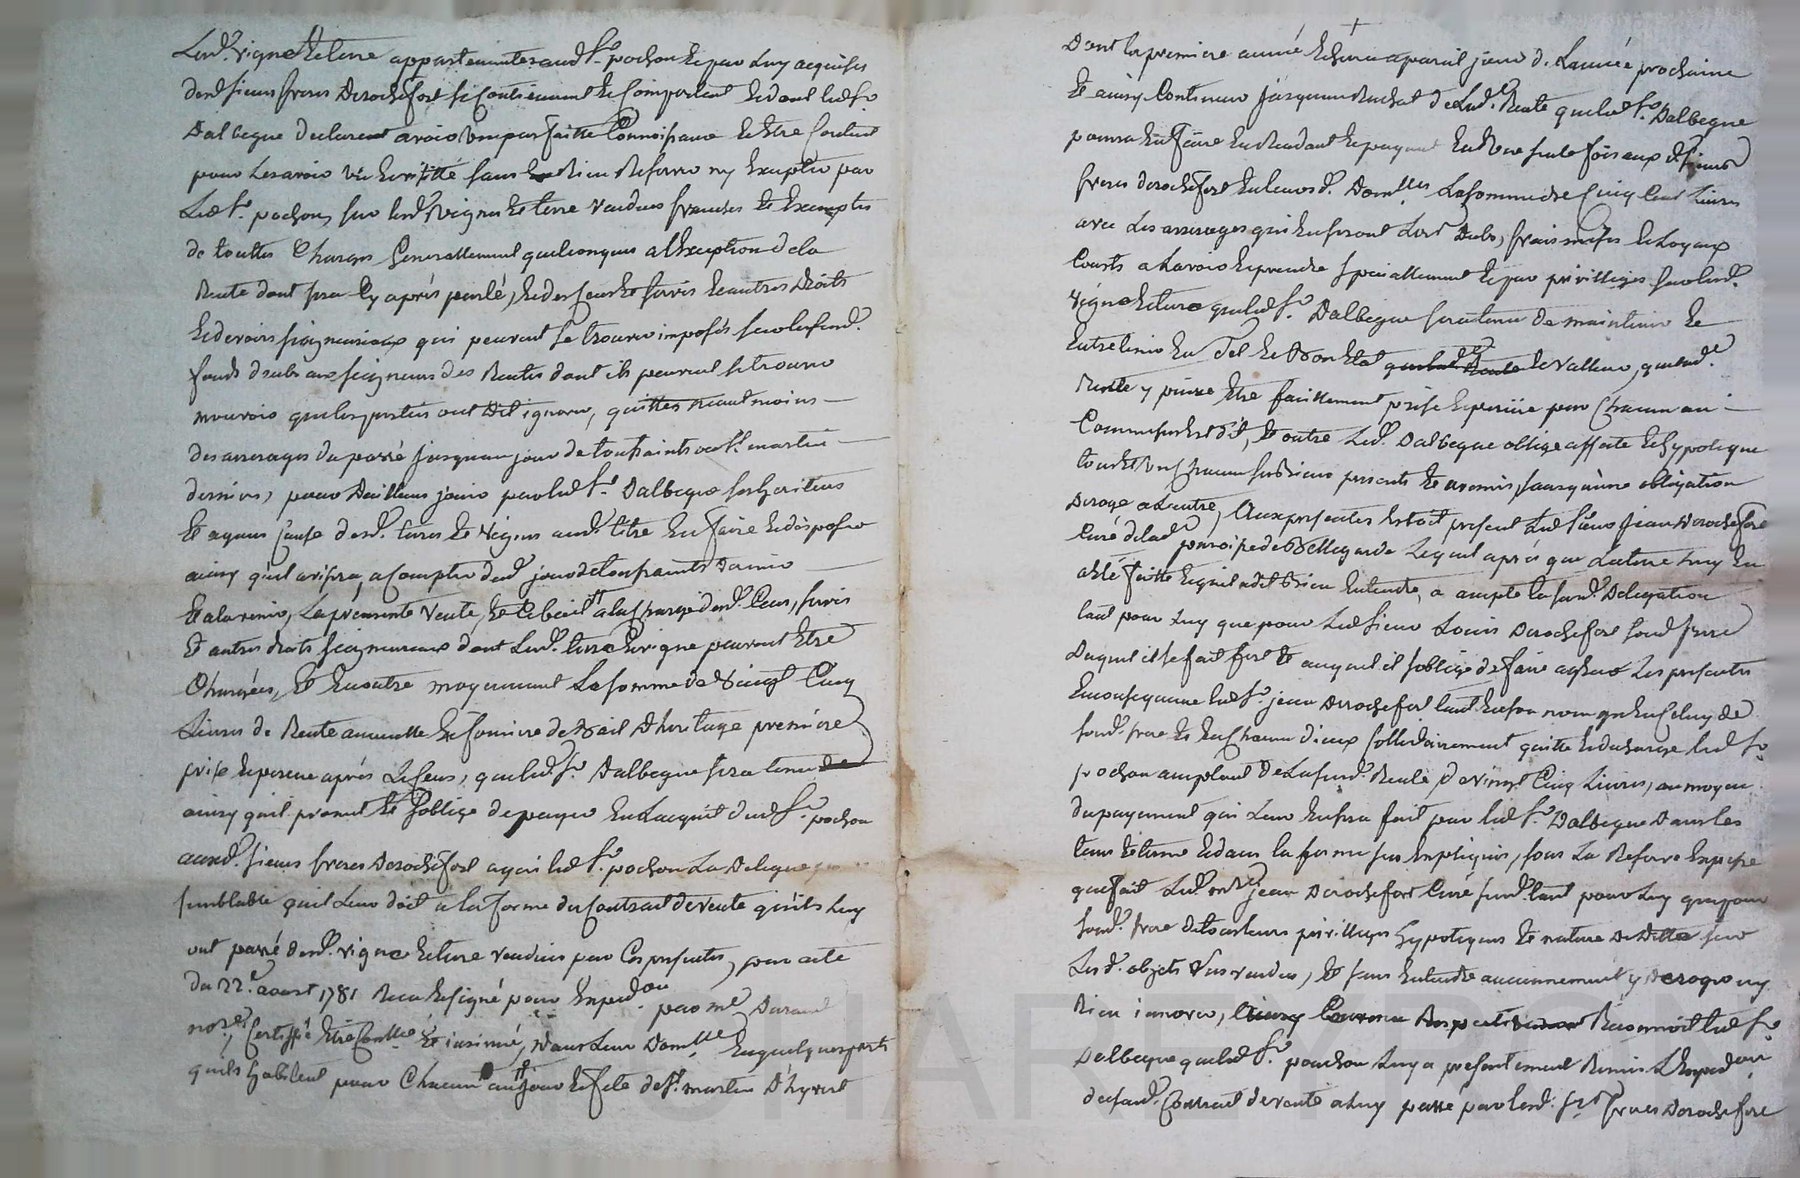 Lesd. vigne et terre appartenantes aud. Sr. pochon et par luy acquises
desd. sieurs freres Derochefort se contiennent et comportent et dont led. Sr.
Dalbegue declarent avoir une parfaitte Connoissance et être Content
pour les avoir vu et visitté sans en Rien Reserver ny Excepter par
Led. Sr. pochon, sur lesd. vignes et terre vendues franches et Exemptes
de touttes Charges Generallement quelconques a l'Exception de la
Rente dont sera Cy après parlé, et des Cens et servis et autres Droits
et devoirs seigneuriaux qui peuvent se trouver imposés sur les susd.
fonds deubs aux seigneurs des Rentes dont ils peuvent se trouver
mouvoir que les parties ont dit ignorer, quittes neantmoins
des arrerages du passé jusquau jour de toussaints ou St. martin
dernier, pour Dailleurs jouir par led. Sr. Dalbegue ses heritiers
et ayans Cause desd. terres et vignes aud. titre En faire et disposer
ainsy qu'il avisera, a Compter dud. jour de toussaints Dernier
et a lavenir, La presente vente, et Ce bail a la charge desd. Cens, servis
et autres droits seigneuriaux dont lesd. terre et vigne peuvent Etre
Chargées, et En outre moyennant La somme de vingt Cinq
Livres de Rente annuelle et fonciere de Bail D'heritage première
prise et perceue après Le Cens, que led. Sr. Dalbegue sera tenu
ainsy qu'il promet et s'oblige de payer En Lacquit dud. Sr. pochon
auxd. sieurs freres Derochefort a qui led. Sr. pochon La Delegue
semblable qu'il Leur doit a la forme du Contract de vente qu'ils luy
ont passé desd. vigne et terre vendues par Ces presentes, par acte
du 22e. aoust 1781 Recu et signé pour Expedon. par me. Durand
nore. Certiffié Etre Conllé. Et insinué, dans Leur Domlle. En quelques parts
quils habitent pour Chacun an jour et fete de St. martin D'hyvert
Dont la premiere année Echerra a pareil jour de Lannée prochaine
Et ainsy Continuer jusquau Rachat de Lad. Rente que led. Sr. Dalbegue
pourra En faire En Rendant et payant En Une seule fois aux d. sieurs
freres derochefort En leurs d. Domlles. La somme de Cinq Cent Livres
avec Les arrerages qui En seront Lors Dubs, frais mises et Loyaux
Couts a Lavoir et prendre specialement et par privilliges sur lesd.
vigne et terre que led. Sr. Dalbegue sera tenu de maintenir et
Entretenir En Tel et Bon Etat et valleur, que lad.
Rente y puisse Etre facillement prise et perceue par Chacun an
Comme sus Est dit, Et outre Led. Dalbegue oblige affecte et hypoteque
tous et Un Chacun ses Biens presents et avenir, sans qu'une obligation
Deroge a Lautre, Aux presentes Estoit present Led. sieur jean Derochefort
Curé de lad. paroisse de Bellegarde Lequel après que Lecture luy En
a Eté faitte et qu'il a dit Bien Entendre, a accepté la susd. Delegation
tant pour luy que pour Led. sieur Louis Derochefort sond. frere
Duquel il se fait fort et auquel il s'oblige de faire agréer Les presentes
En Consequence led. Sr. jean Derochefort tant En son nom qu'En Celuy de
sond. frere Et En Chacun d'iceux sollidairement quitte et decharge led. Sr.
pochon acceptant de La susd. Rente de vingt Cinq Livres, au moyen
du payement qui Leur En sera fait par led. Sr. Dalbegue Dans les
tems Et terme et dans la forme sus Expliquée, sous La Reserve Expresse
que fait Led. mre. jean Derochefort Curé susd. tant pour luy que pour
sond. frere de tous leurs privilleges hypoteques et nature de Dette sur
Lesd. objets sus vendus, Et sans Entendre aucunement y Deroger ny
Rien innover, Reconnoit led. Sr.
Dalbegue que led. Sr. pochon luy a presentement Remis L'Expedon.
du susd. Contract de vente a luy passé par lesd. Srs. freres Derochefort